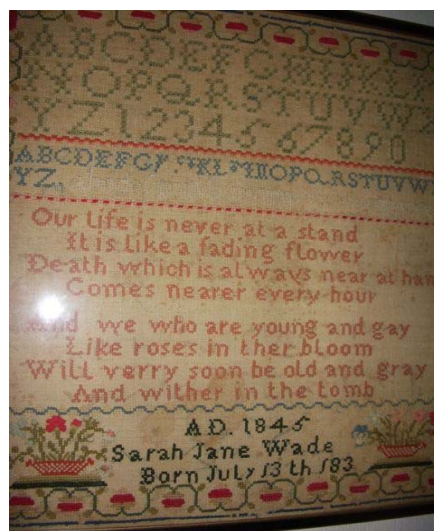 ABCDEFGHIKL
NOPQRSTUVW
YZ1234567890
ABCDEFG KL OPQRSTUVW
YZ.
Our life is never at a stand
It is like a fading flower
Death which is always near at han
Comes nearer every hour
And we who are young and gay
Like roses in ther bloom
Will verry soon be old and gray
And wither in the tomb
A.D. 1845
Sarah Jane Wade
Born July 13th 183